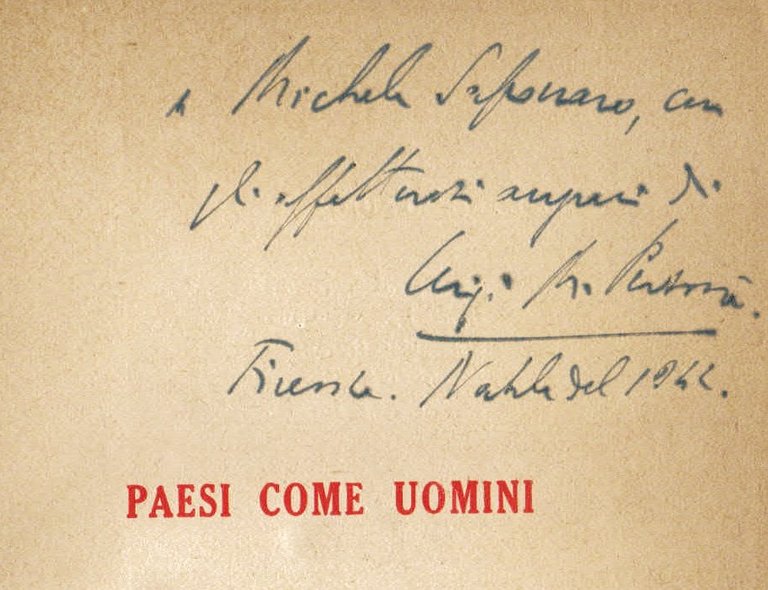 a Michele Saponaro, con
gli affettuosi auguri di
Luigi M. Personè.
Firenze. Natale del 1942.
PAESI COME UOMINI